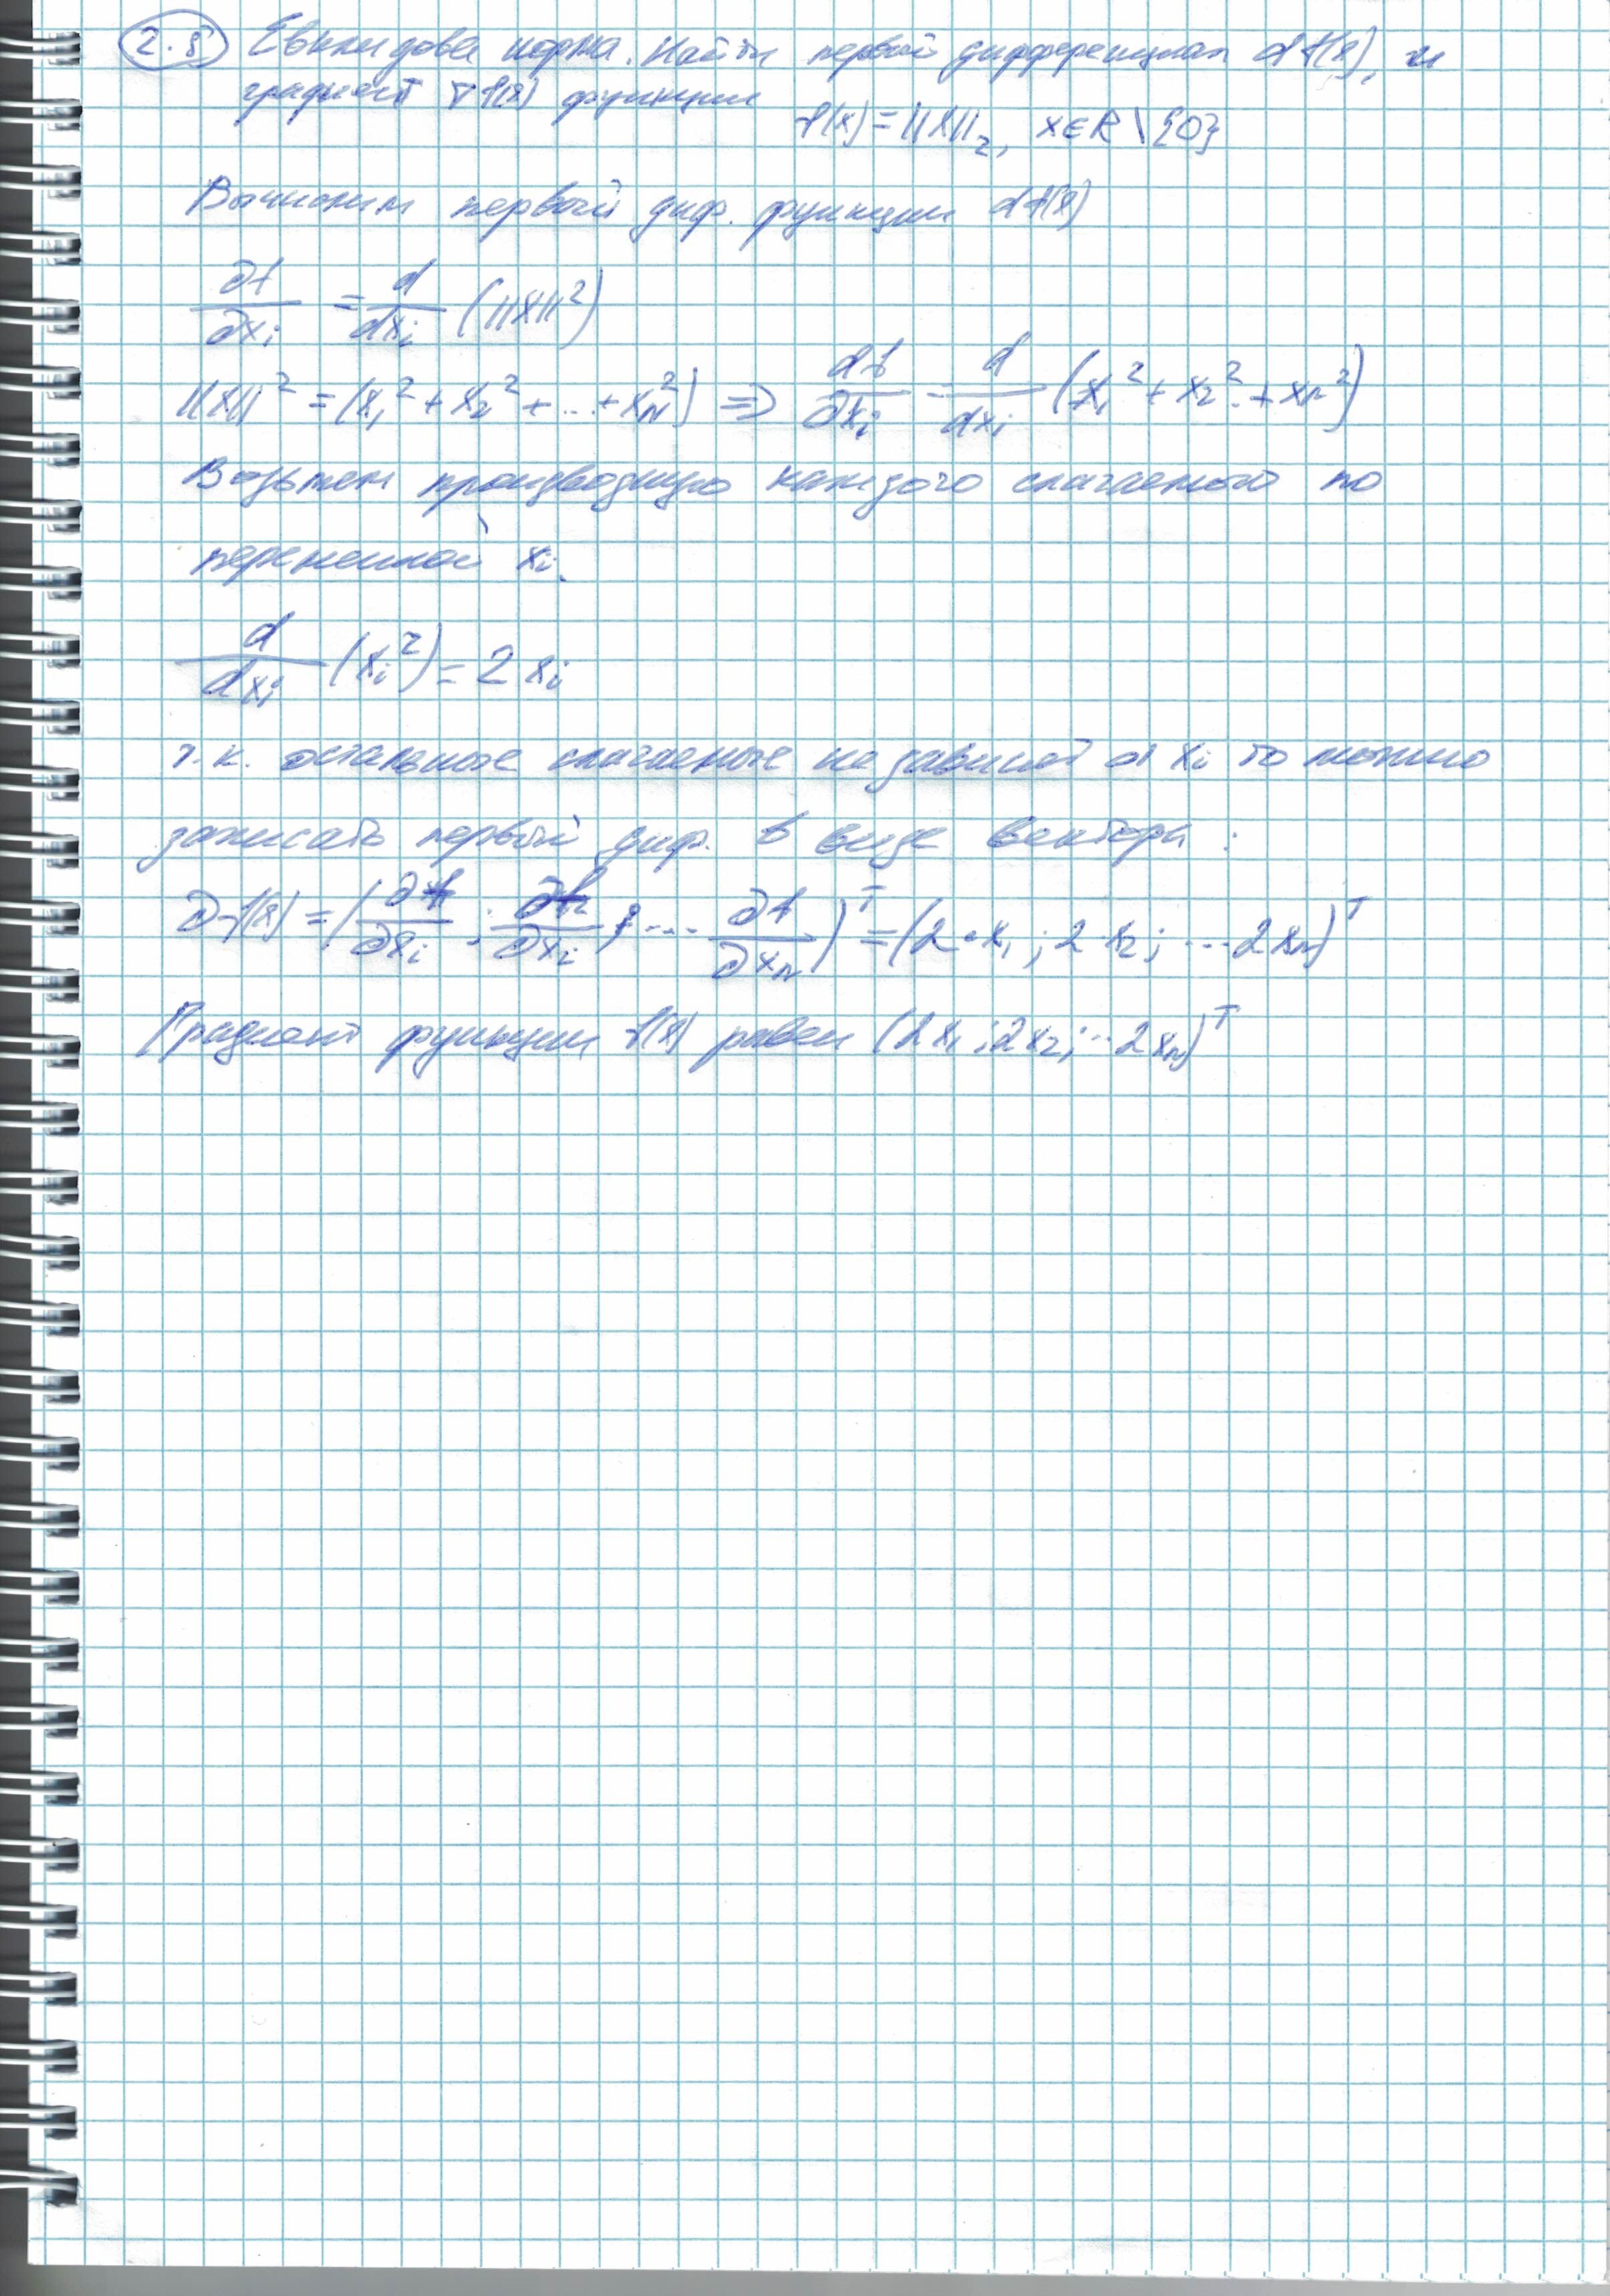 2.8 Евклидова норма. Найти первый дифференциал df(x), и
градиент ∇f(x) функции
f(x) = ||x||₂, x∈R\{0}
Вычислим первый диф. функции df(x)
∂f/∂xᵢ = d/dxᵢ (||x||²)
||x||² = (x₁² + x₂² + ... + xₙ²) => df/∂xᵢ = d/dxᵢ (x₁² + x₂² .. + xₙ²)
Возьмем производную каждого слагаемого по
переменной xᵢ.
d/dxᵢ (xᵢ²) = 2xᵢ
т.к. остальные слагаемые не зависят от xᵢ то можно
записать первый диф. в виде вектора:
∂f(x) = (∂f/∂xᵢ ; ∂f/∂xᵢ ; ... ∂f/∂xₙ)ᵀ = (2·x₁ ; 2·x₂ ; ... 2xₙ)ᵀ
Градиент функции f(x) равен (2x₁ ; 2x₂ ; ... 2xₙ)ᵀ